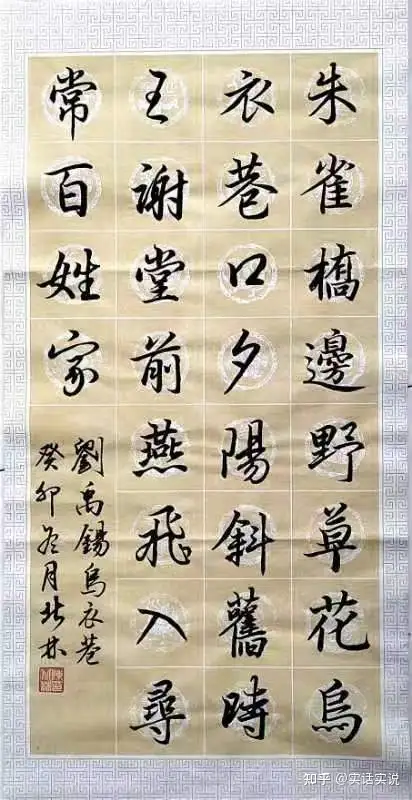 朱雀橋邊野草花烏
衣巷口夕陽斜舊時
王謝堂前燕飛入尋
常百姓家
劉禹錫烏衣巷
癸卯冬月北林
知乎 @实话实说